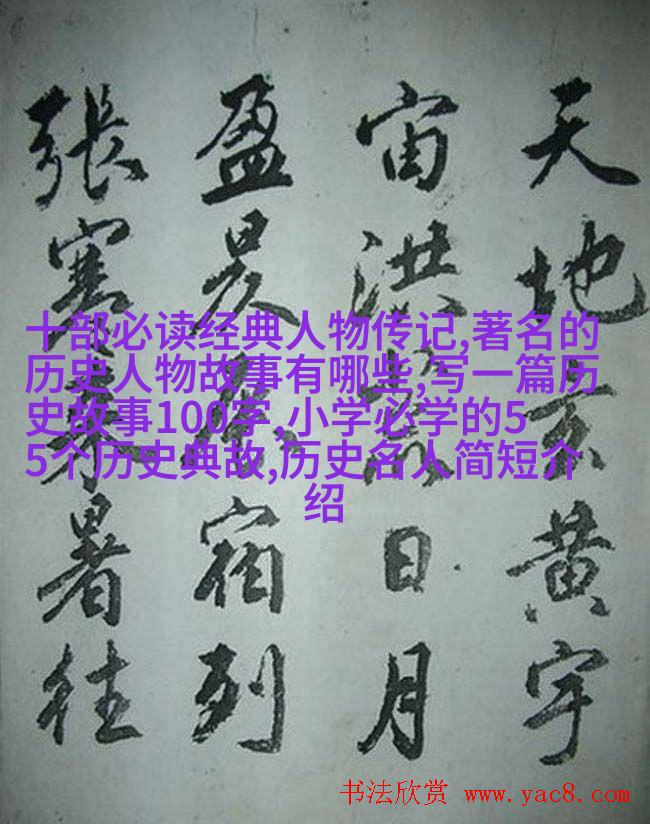 天地玄黄宇
宙洪荒日月
盈昃辰宿列
張寒来暑往
十部必读经典人物传记,著名的
历史人物故事有哪些,写一篇历
史故事100字,小学必学的5
5个历史典故,历史名人简短介
绍
书法欣赏 www.yac8.com